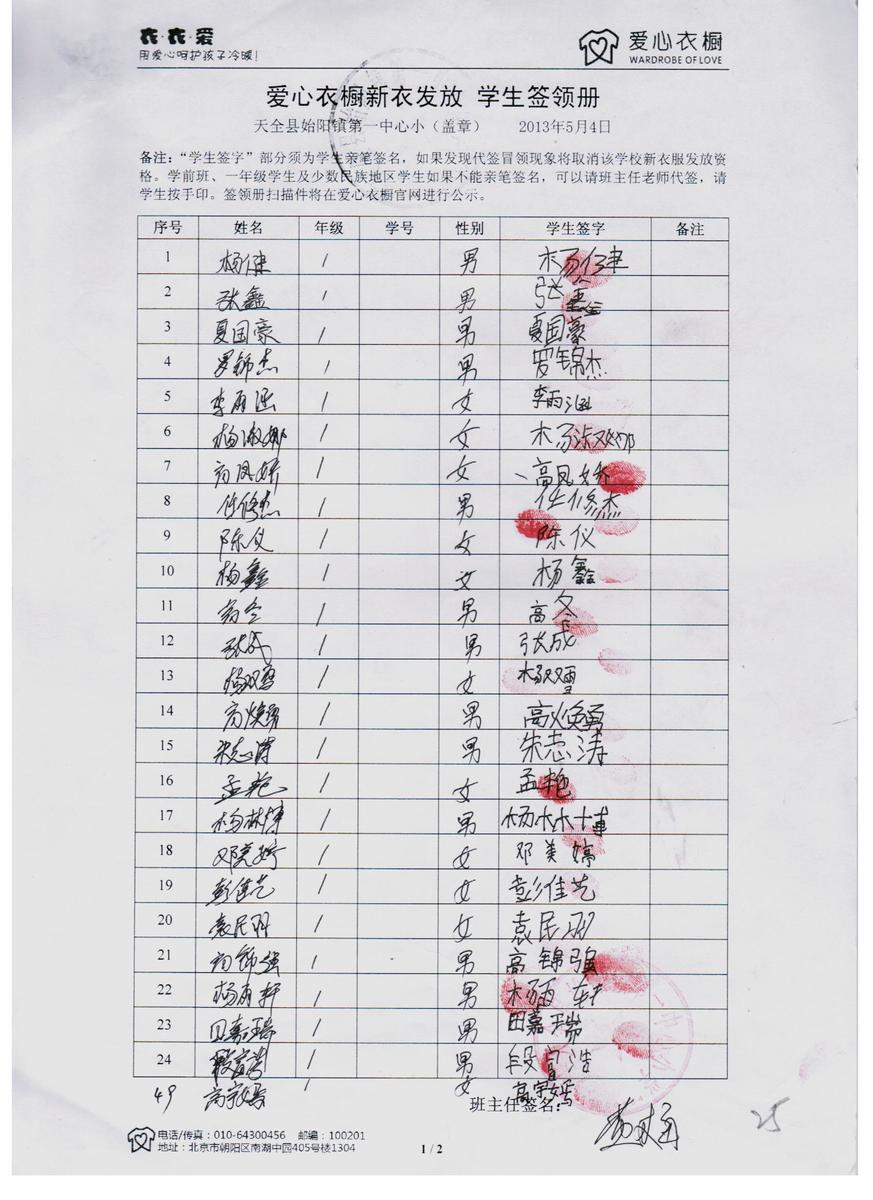 衣·衣·爱
用爱心呵护孩子冷暖！
爱心衣橱
WARDROBE OF LOVE
爱心衣橱新衣发放 学生签领册
天全县始阳镇第一中心小（盖章） 2013年5月4日
备注：“学生签字”部分须为学生亲笔签名，如果发现代签冒领现象将取消该学校新衣服发放资
格。学前班、一年级学生及少数民族地区学生如果不能亲笔签名，可以请班主任老师代签，请
学生按手印。签领册扫描件将在爱心衣橱官网进行公示。
序号 姓名 年级 学号 性别 学生签字 备注
1 杨健 1 男 杨健
2 张鑫 1 男 张鑫
3 夏国豪 1 男 夏国豪
4 罗锦杰 1 男 罗锦杰
5 李雨涵 1 女 李雨涵
6 杨淑娜 1 女 杨淑娜
7 高凤娇 1 女 高凤娇
8 任修杰 1 男 任修杰
9 陈仪 1 女 陈仪
10 杨鑫 1 女 杨鑫
11 1 男 高
12 张成 1 男 张成
13 杨双雪 1 女 杨双雪
14 高焕勇 1 男 高焕勇
15 朱志涛 1 男 朱志涛
16 孟艳 1 女 孟艳
17 杨林博 1 男 杨林
18 邓美婷 1 女 邓美婷
19 彭佳艺 1 女 彭佳艺
20 袁民羽 1 女 袁民羽
21 高锦强 1 男 高锦强
22 杨雨轩 1 男 杨雨轩
23 田嘉瑞 1 男 田嘉瑞
24 1 男 段富浩
49 高宇嫣 1 女 高宇嫣
班主任签名：
25
电话/传真：010-64300456 邮编：100201
地址：北京市朝阳区南湖中园405号楼1304
1 / 2